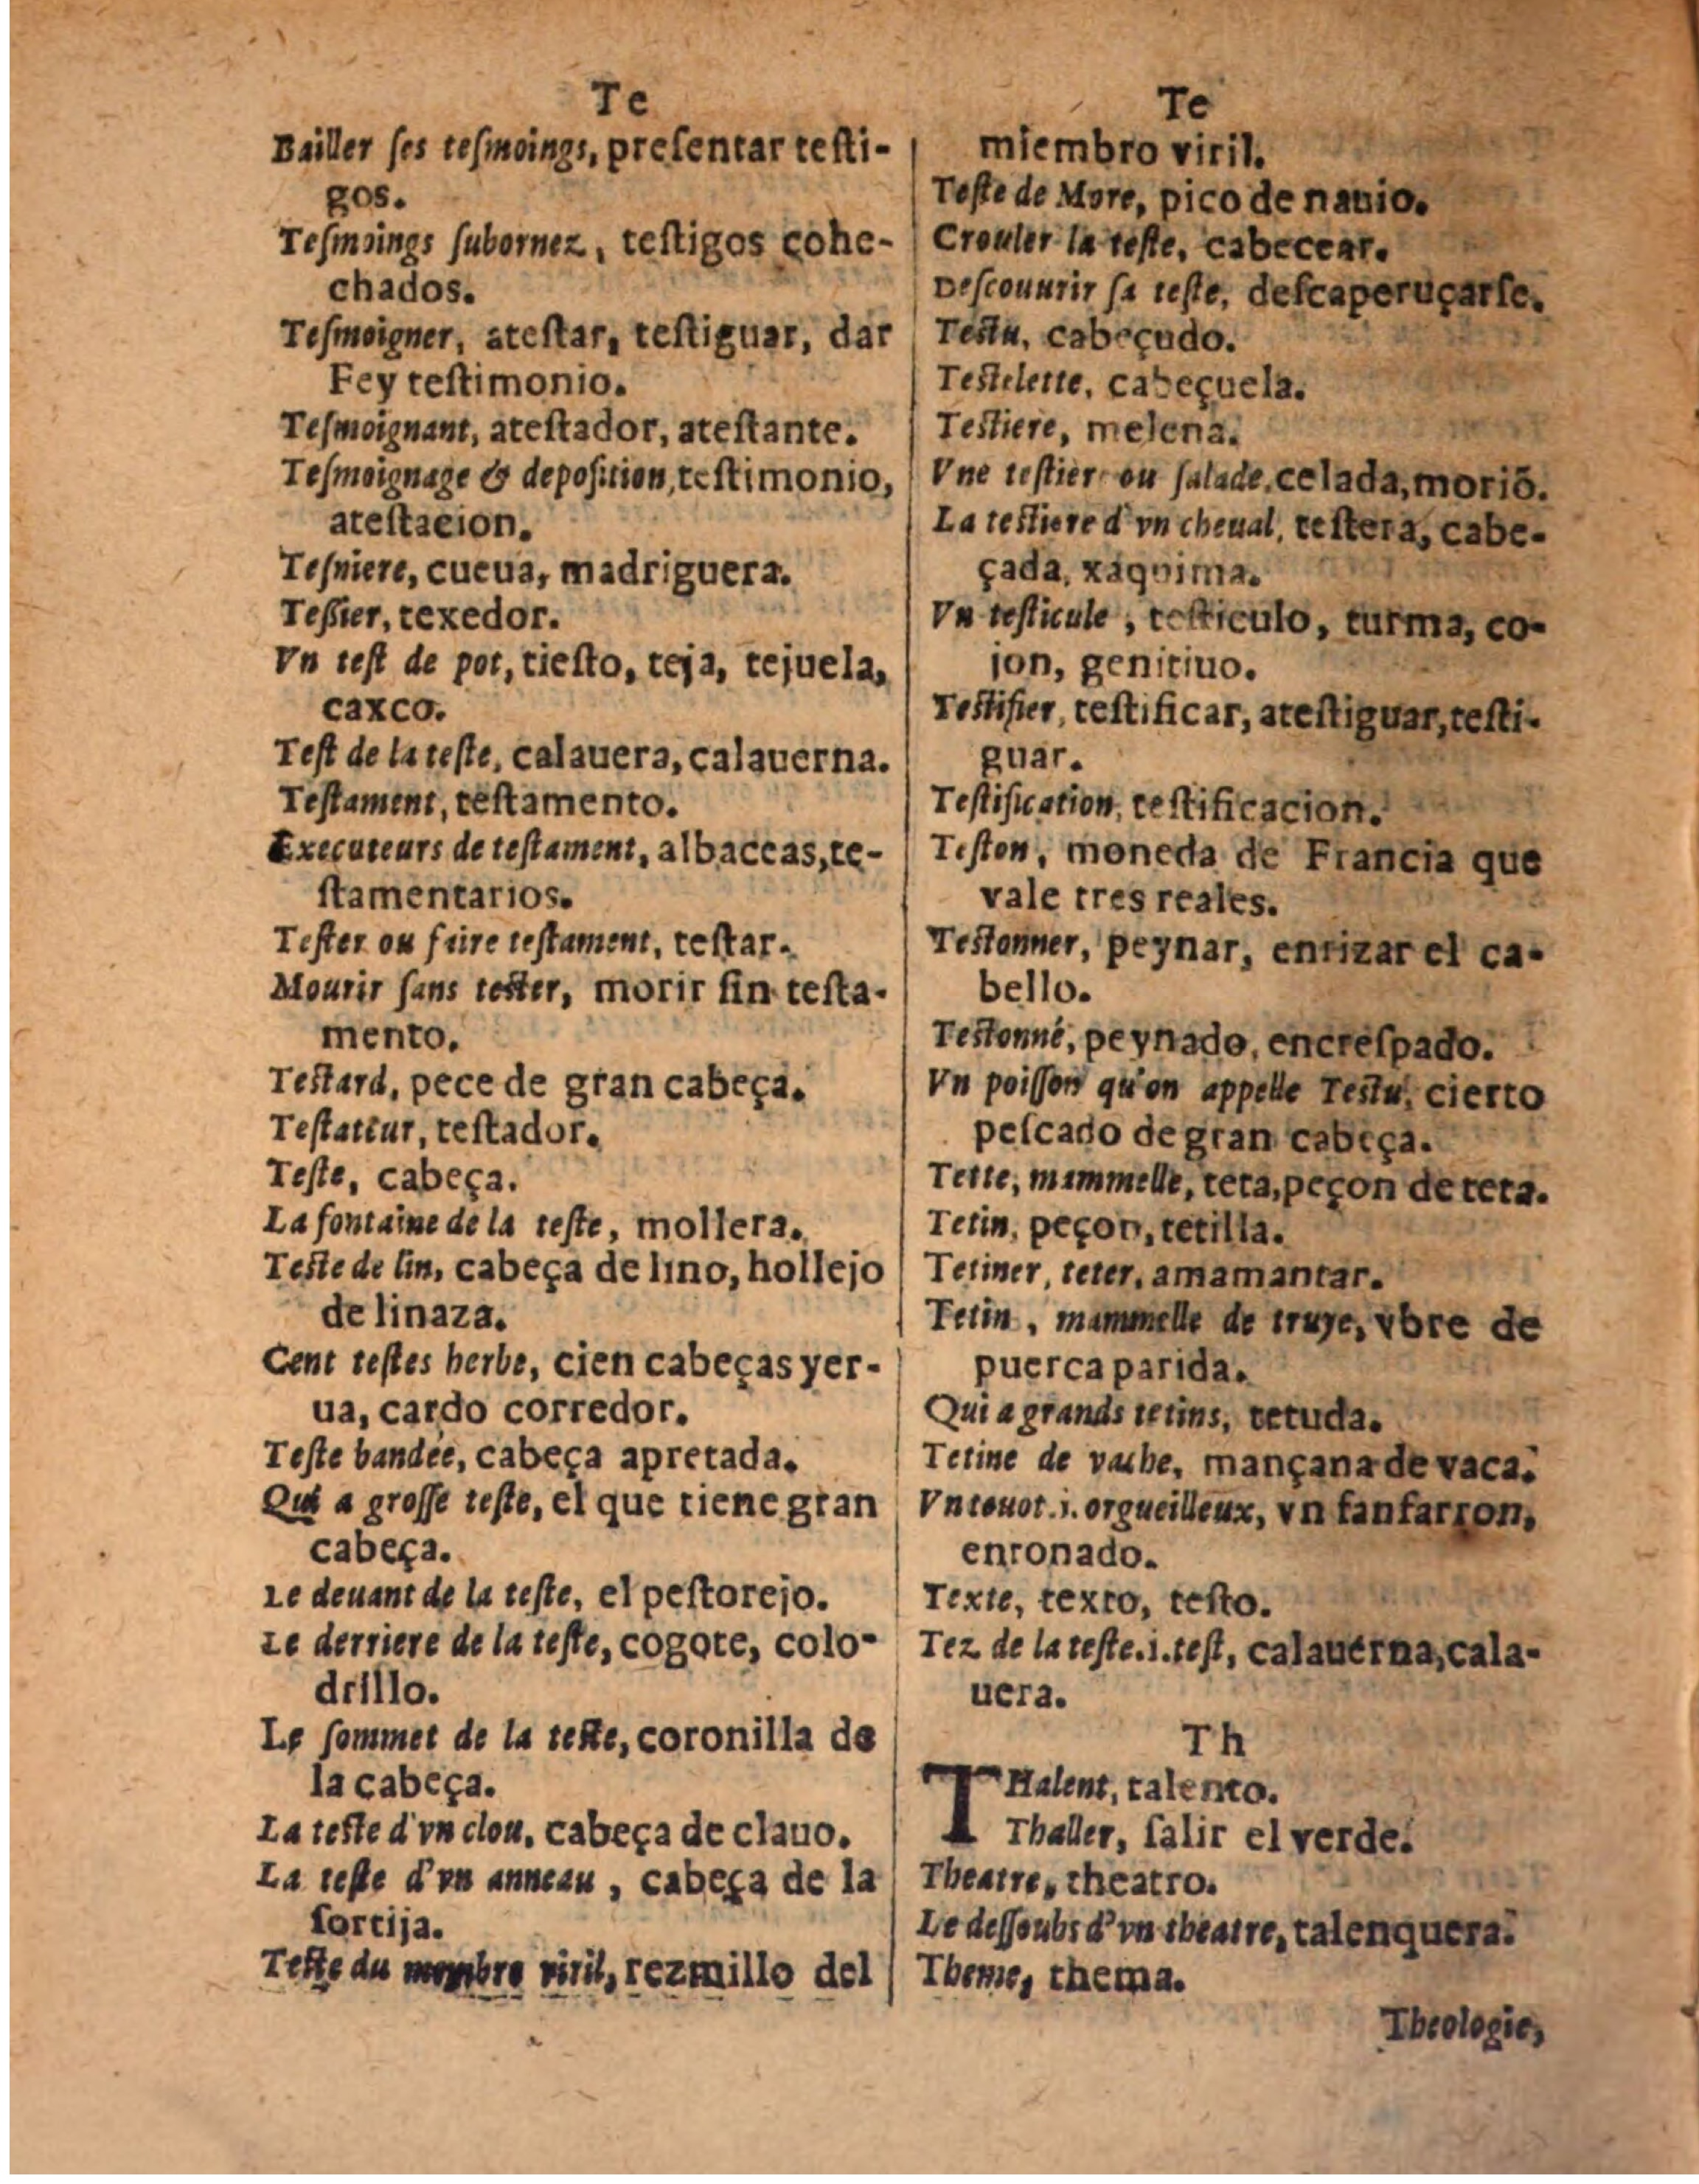 Te
Bailler ſes teſmoings, preſentar teſti-
gos.
Teſmoings ſubornez, teſtigos cohe-
chados.
Teſmoigner, ateſtar, teſtiguar, dar
Fey teſtimonio.
Teſmoignant, ateſtador, ateſtante.
Teſmoignage & depoſition, teſtimonio,
ateſtacion.
Teſniere, cueua, madriguera.
Teſſier, texedor.
Vn teſt de pot, tieſto, teja, tejuela,
caxco.
Teſt de la teſte, calauera, calauerna.
Teſtament, teſtamento.
Executeurs de teſtament, albaceas, te-
ſtamentarios.
Teſter ou faire teſtament, teſtar.
Mourir ſans teſter, morir ſin teſta-
mento.
Teſtard, pece de gran cabeça.
Teſtateur, teſtador.
Teſte, cabeça.
La fontaine de la teſte, mollera.
Teſte de lin, cabeça de lino, hollejo
de linaza.
Cent teſtes herbe, cien cabeças yer-
ua, cardo corredor.
Teſte bandée, cabeça apretada.
Qui a groſſe teſte, el que tiene gran
cabeça.
Le deuant de la teſte, el peſtorejo.
Le derriere de la teſte, cogote, colo-
drillo.
Le ſommet de la teſte, coronilla de
la cabeça.
La teſte d'vn clou, cabeça de clauo.
La teſte d'vn anneau, cabeça de la
ſortija.
Teſte du membre viril, rezmillo del
Te
miembro viril.
Teſte de More, pico de nauio.
Crouler la teſte, cabecear.
Deſcouurir ſa teſte, deſcaperuçarſe.
Teſtu, cabeçudo.
Teſtelette, cabeçuela.
Teſtiere, melena.
Vne teſtiere ou ſalade, celada, moriõ.
La teſtiere d'vn cheual, teſtera, cabe-
çada, xaquima.
Vn teſticule, teſticulo, turma, co-
jon, genitiuo.
Teſtifier, teſtificar, ateſtiguar, teſti-
guar.
Teſtification, teſtificacion.
Teſton, moneda de Francia que
vale tres reales.
Teſtonner, peynar, enrizar el ca-
bello.
Teſtonné, peynado, encreſpado.
Vn poiſſon qu'on appelle Teſtu, cierto
peſcado de gran cabeça.
Tette, mammelle, teta, peçon de teta.
Tetin, peçon, tetilla.
Tetiner, teter, amamantar.
Tetin, mammelle de truye, vbre de
puerca parida.
Qui a grands tetins, tetuda.
Tetine de vache, mançana de vaca.
Vn touot.i. orgueilleux, vn fanfarron,
entonado.
Texte, texto, teſto.
Tez de la teſte.i.teſt, calauerna, cala-
uera.
Th
THalent, talento.
Thaller, ſalir el verde.
Theatre, theatro.
Le deſſoubs d'vn theatre, talenquera.
Theme, thema.
Theologie,